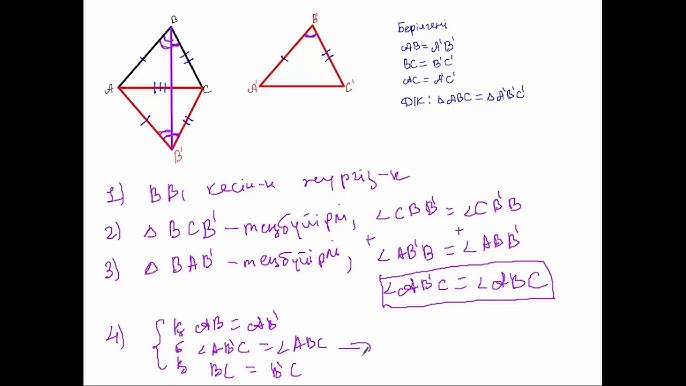 B
A
C
B'
B'
A'
C'
Берілгені
AB = A'B'
BC = B'C'
AC = A'C'
Д/К: △ABC = △A'B'C'
1) BB₁ кесін-н жүргіз-к
2) △BCB' – теңбүйірлі, ∠CBB' = ∠CB'B
3) △BAB' – теңбүйірлі, + ∠AB'B = + ∠ABB'
∠AB'C = ∠ABC
4) қ AB = AB'
б ∠AB'C = ∠ABC ⟶
қ BC = B'C